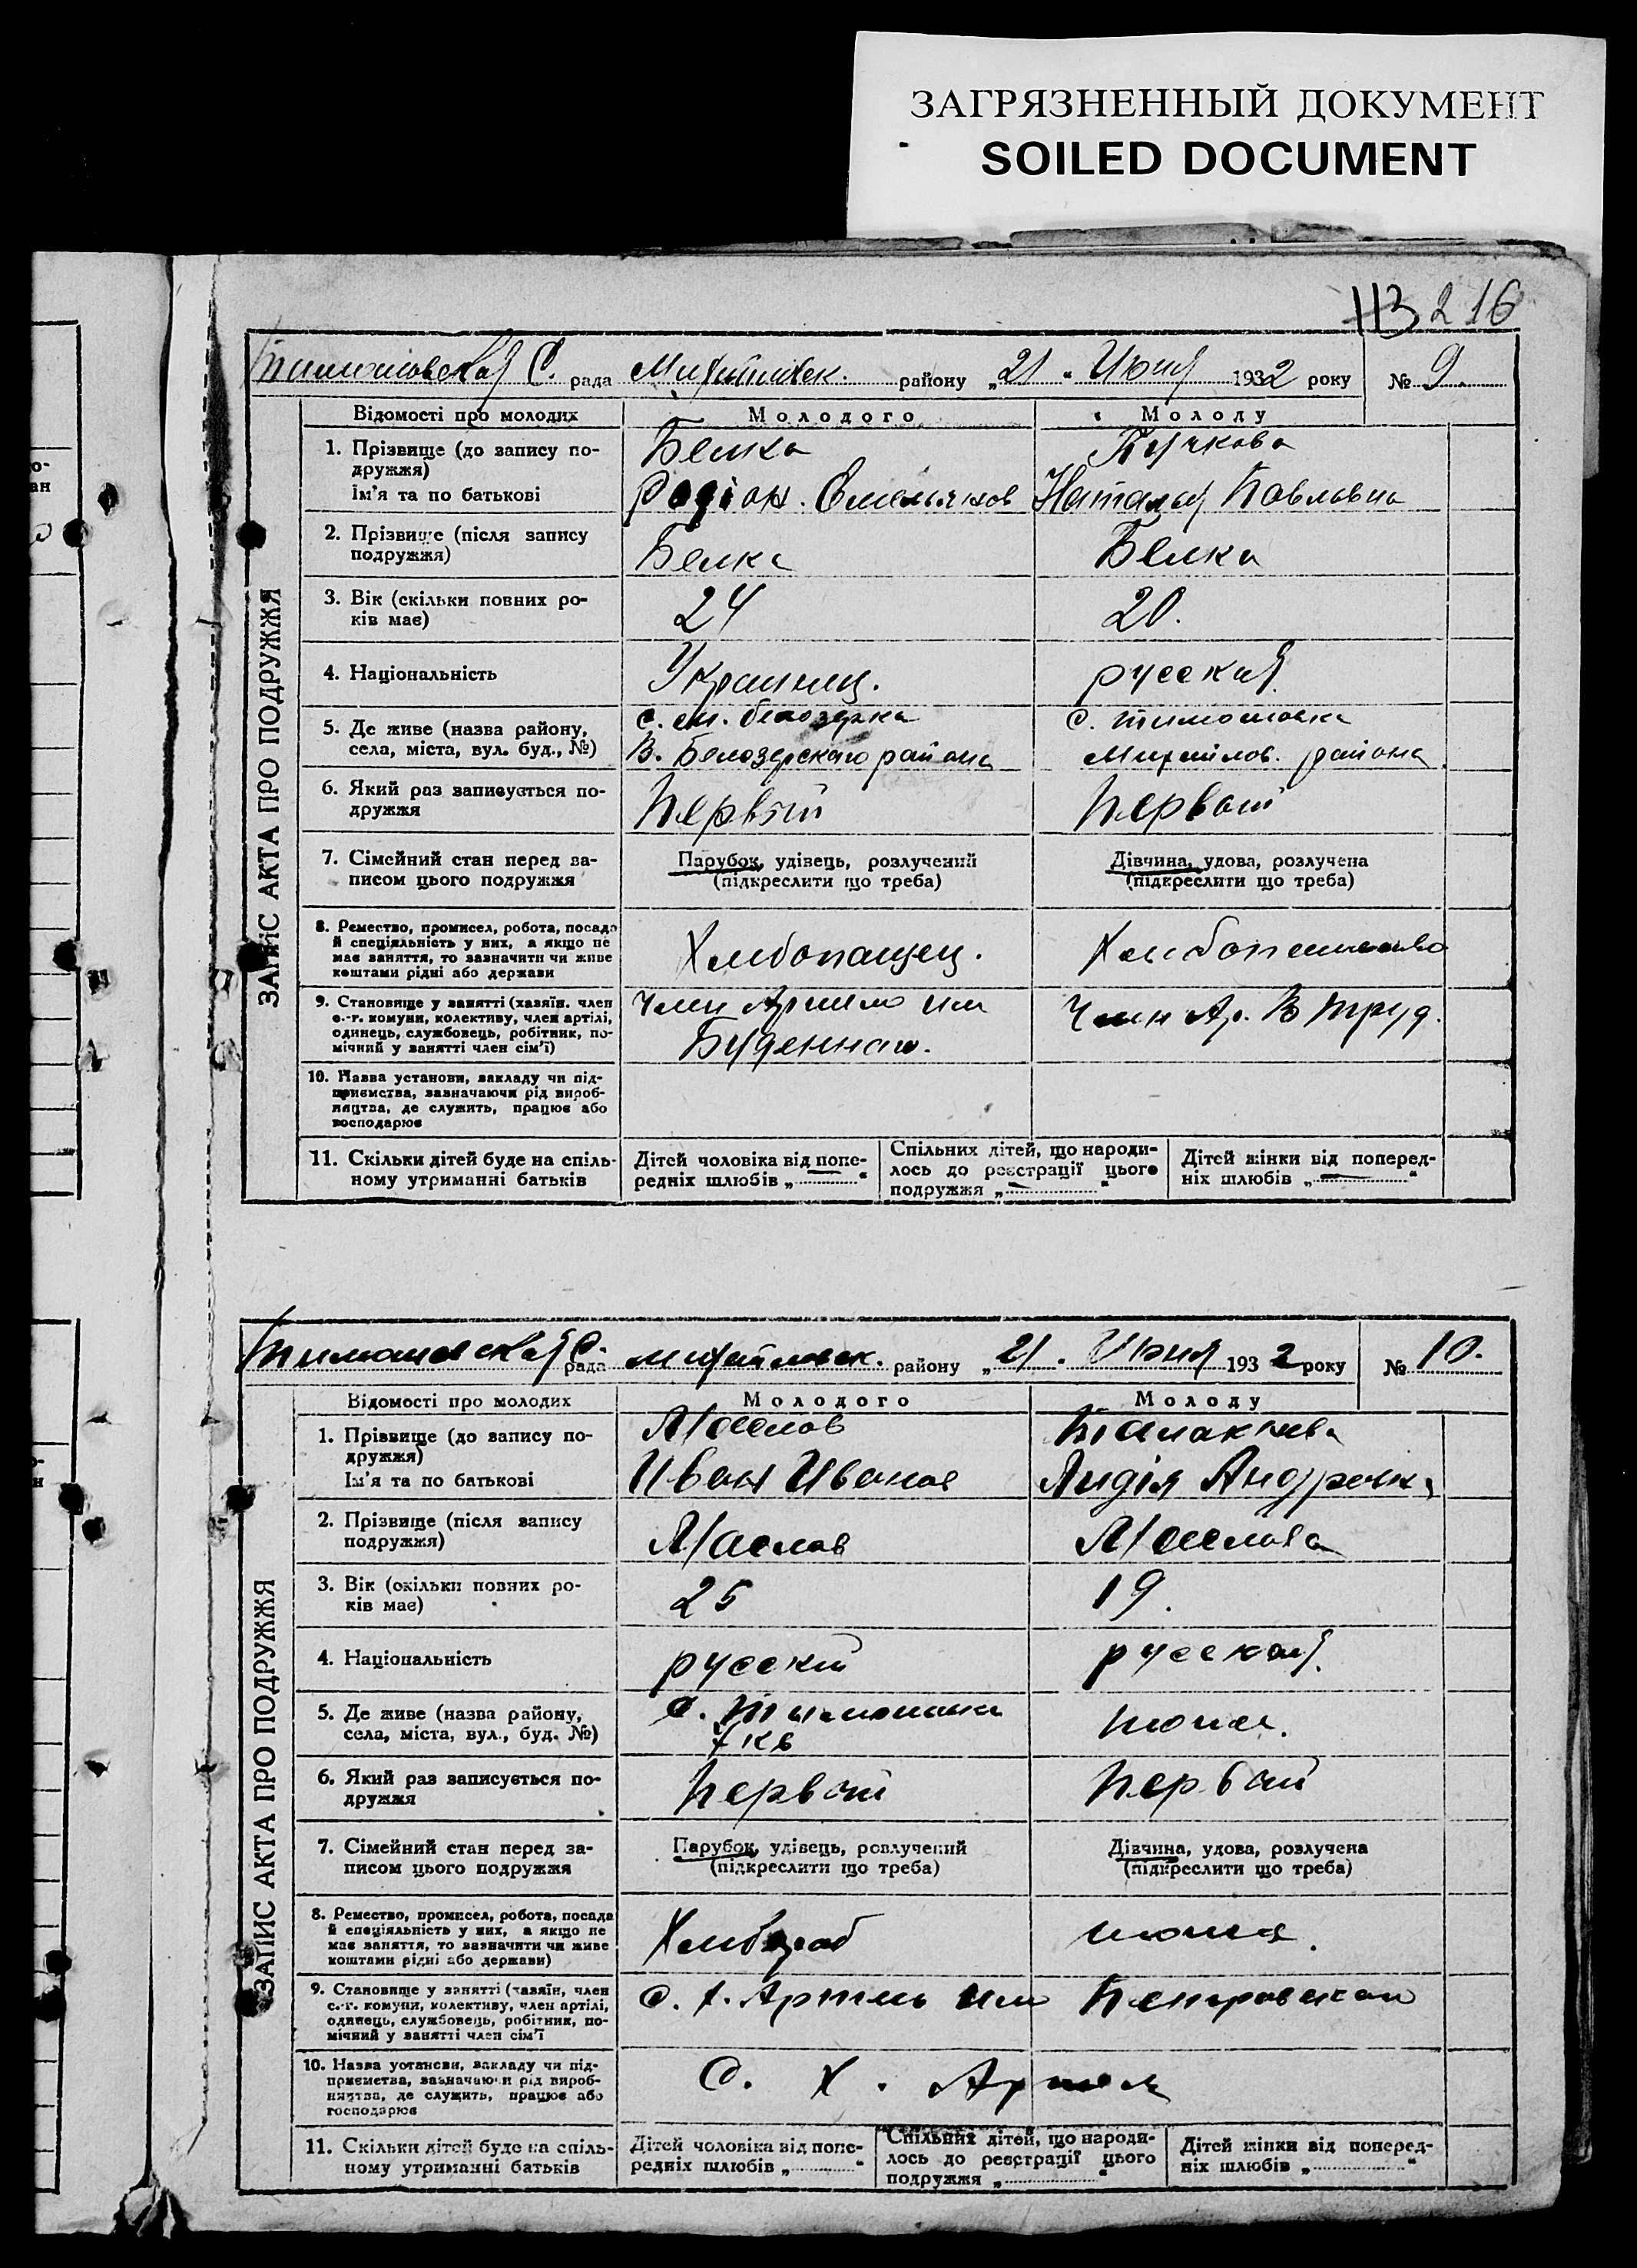 ЗАГРЯЗНЕННЫЙ ДОКУМЕНТ
SOILED DOCUMENT
113 216
Тимошовская С. рада Михайловск. району „21" Июня 1932 року № 9.
ЗАПИС АКТА ПРО ПОДРУЖЖЯ
Відомості про молодих Молодого Молоду
1. Прізвище (до запису подружжя) Белка Пучкова
Ім'я та по батькові Родіон. Емельянов Наталья Павловна
2. Прізвище (після запису подружжя) Белка Белка
3. Вік (скільки повних років має) 24 20.
4. Національність Украинец. русская
5. Де живе (назва району, с. м. белозерка с. тимошовка
села, міста, вул. буд., №) В. Белозерского района Михайлов. района
6. Який раз записується подружжя Первый Первый
7. Сімейний стан перед за- Парубок, удівець, розлучений Дівчина, удова, розлучена
писом цього подружжя (підкреслити що треба) (підкреслити що треба)
8. Ремество, промисел, робота, посада
й спеціяльність у них, а якщо не Хлибопашец. Хлибопашество
має заняття, то зазначити чи живе
коштами рідні або держави
9. Становище у занятті (хазяїн. член Член Артили им Член Ар. В труд.
с.-г. комуни, колективу, член артілі, Буденнаго.
одинець, службовець, робітник, по-
мічний у занятті член сім'ї)
10. Назва установи, закладу чи під-
приємства, зазначаючи рід вироб-
ництва, де служить, працює або
господарює
11. Скільки дітей буде на спіль- Дітей чоловіка від попе- Спільних дітей, що народи- Дітей жінки від поперед-
ному утриманні батьків редніх шлюбів „ " лось до реєстрації цього ніх шлюбів „ "
подружжя „ "
Тимошевская С. рада михайловск. району „21. Июня 1932 року № 10.
ЗАПИС АКТА ПРО ПОДРУЖЖЯ
Відомості про молодих Молодого Молоду
1. Прізвище (до запису подружжя) Маслов
Ім'я та по батькові Иван Иванов Лидія
2. Прізвище (після запису подружжя) Маслов Маслова
3. Вік (скільки повних років має) 25 19.
4. Національність русский русская.
5. Де живе (назва району, с. Тимошовки
села, міста, вул., буд. №)
6. Який раз записується подружжя Первый Первый
7. Сімейний стан перед за- Парубок, удівець, розлучений Дівчина, удова, розлучена
писом цього подружжя (підкреслити що треба) (підкреслити що треба)
8. Ремество, промисел, робота, посада
й спеціяльність у них, а якщо не Хлибороб
має заняття, то зазначити чи живе
коштами рідні або держави)
9. Становище у занятті (хазяїн, член С. х. Артель им Петровскаго
с.-г. комуни, колективу, член артілі,
одинець, службовець, робітник, по-
мічний у занятті член сім'ї
10. Назва установи, закладу чи під-
приємства, зазначаючи рід вироб- С. Х. Артель
ництва, де служить, працює або
господарює
11. Скільки дітей буде на спіль- Дітей чоловіка від попе- Спільних дітей, що народи- Дітей жінки від поперед-
ному утриманні батьків редніх шлюбів „ " лось до реєстрації цього ніх шлюбів „ "
подружжя „ "